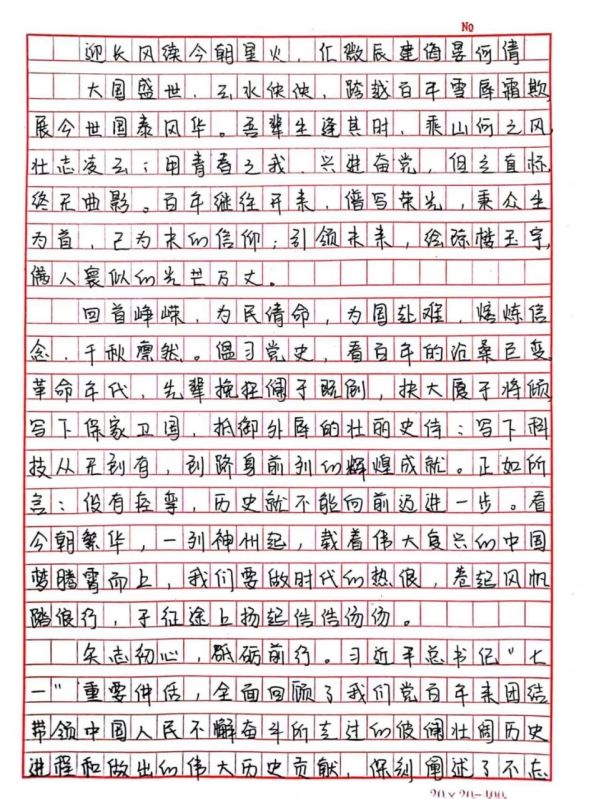 No
迎长风续今朝星火，汇微辰建
大国盛世，云水泱泱，跨越百年雪辱霜欺，
展今世国泰风华。吾辈生逢其时，乘山河之风，
壮志凌云；用青春之我，兴进奋党，但立直怀，
终无曲影。百年继往开来，谱写荣光，秉众生
为首，己为末的信仰；引领未来，绘琼楼玉宇，
人襄似的光芒万丈。
回首峥嵘，为民请命，为国赴难，熔炼信
念，千秋凛然。温习党史，看百年的沧桑巨变。
革命年代，先辈挽狂澜于既倒，扶大厦于将倾，
写下保家卫国，抵御外辱的壮丽史诗；写下科
技从无到有，到跻身前列的辉煌成就。正如所
言：没有轻掌，历史就不能向前迈进一步。看
今朝繁华，一列神州起，载着伟大复兴的中国
梦腾霄而上，我们要做时代的热浪，卷起风帆
踏浪行，于征途上扬起
矢志初心，砥砺前行。习近平总书记“七
一”重要讲话，全面回顾了我们党百年来团结
带领中国人民不懈奋斗所走过的波澜壮阔历史
进程和做出的伟大历史贡献，深刻阐述了不忘
20×20=400